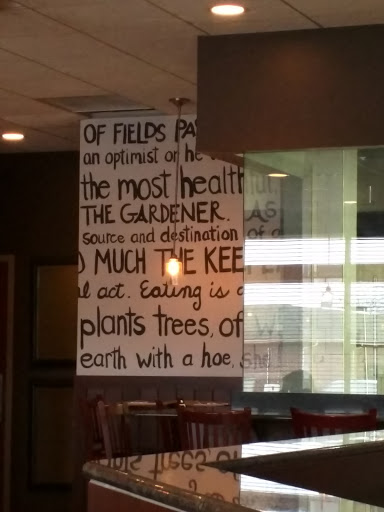 OF FIELDS PA
an optimist or he
the most healthful,
THE GARDENER. AS
source and destination of a
MUCH THE KEE
l act. Eating is a
plants trees, of W
earth with a hoe, she